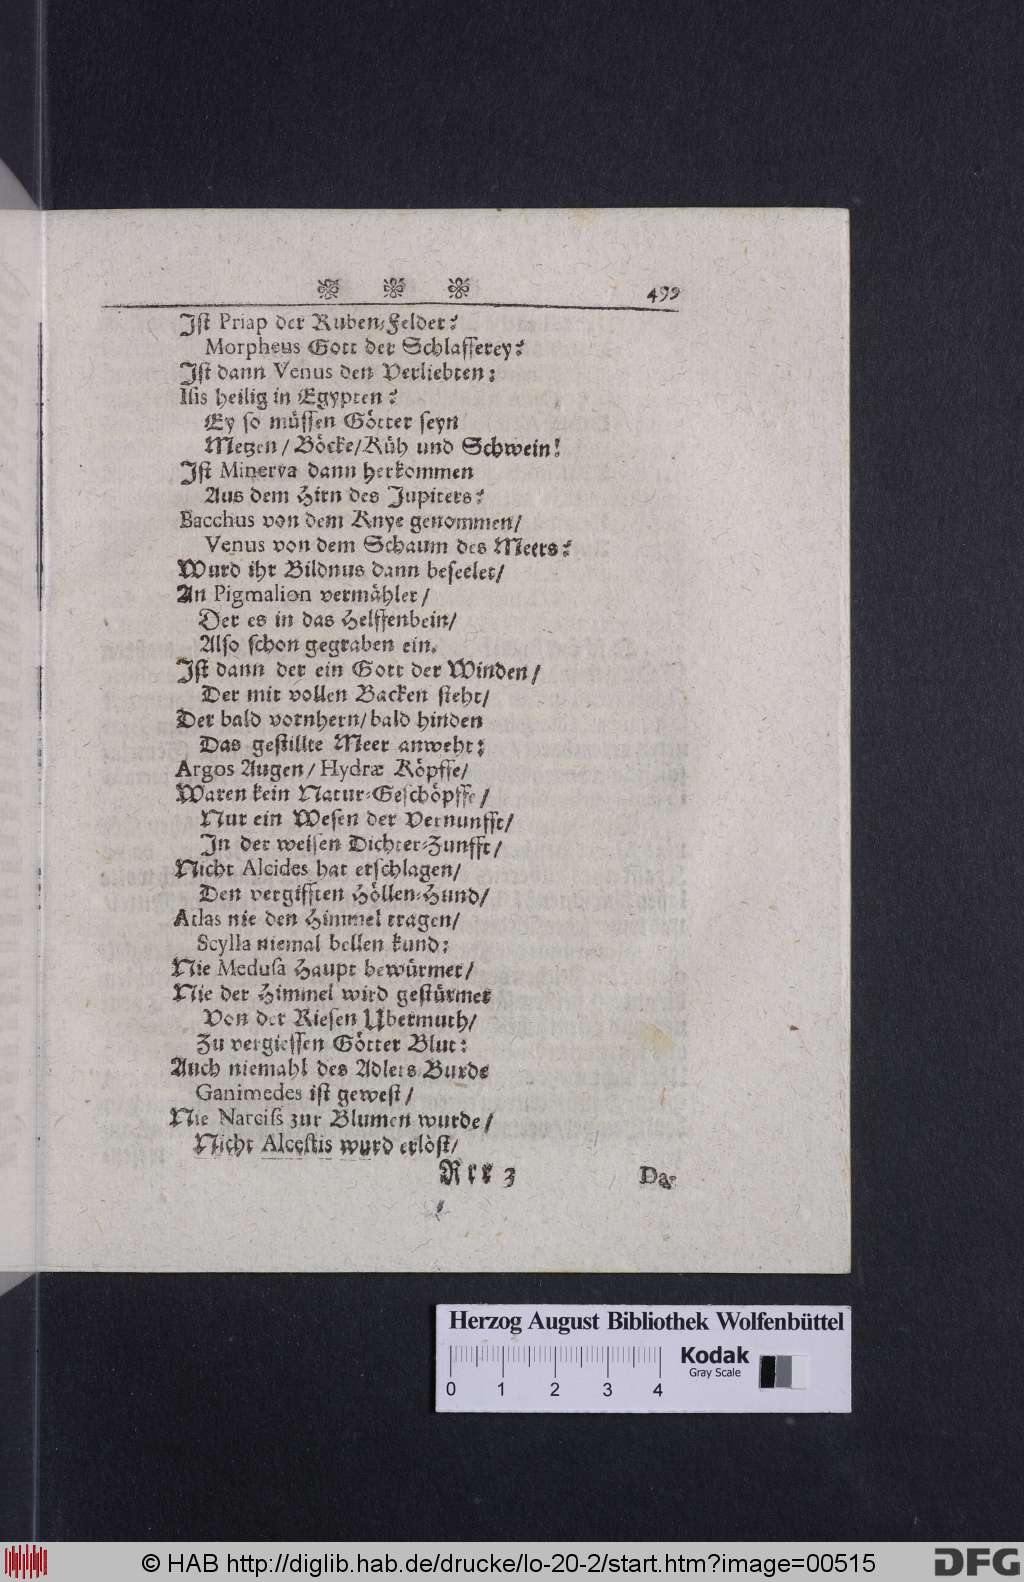 499
Jſt Priap der Ruben-Felder?
Morpheus Gott der Schlaffſerey?
Jſt dann Venus den Verliebten:
Iſis heilig in Egypten?
Ey ſo müſſen Götter ſeyn
Metzen/ Böcke/ Küh und Schwein!
Jſt Minerva dann herkommen
Aus dem Hirn des Jupiters?
Bacchus von dem Knye genommen/
Venus von dem Schaum des Meers?
Wurd ihr Bildnus dann beſeelet/
An Pigmalion vermählet/
Der es in das Helffenbein/
Alſo ſchon gegraben ein.
Jſt dann der ein Gott der Winden/
Der mit vollen Backen ſteht/
Der bald vornhern/ bald hinden
Das geſtillte Meer anweht:
Argos Augen/ Hydræ Köpffe/
Waren kein Natur-Geſchöpffe/
Nur ein Weſen der Vernunfft/
In der weiſen Dichter-Zunfft/
Nicht Alcides hat erſchlagen/
Den vergifften Höllen-Hund/
Atlas nie den Himmel tragen/
Scylla niemal bellen kund:
Nie Meduſa Haupt bewürmet/
Nie der Himmel wird geſtürmet
Von der Rieſen Ubermuth/
Zu vergieſſen Götter Blut:
Auch niemahl des Adlers Burde
Ganimedes iſt geweſt/
Nie Narciſs zur Blumen wurde/
Nicht Alceſtis wurd erlöſt/
Rrr 3
Da-
Herzog August Bibliothek Wolfenbüttel
0 1 2 3 4
Kodak
Gray Scale
© HAB http://diglib.hab.de/drucke/lo-20-2/start.htm?image=00515
DFG